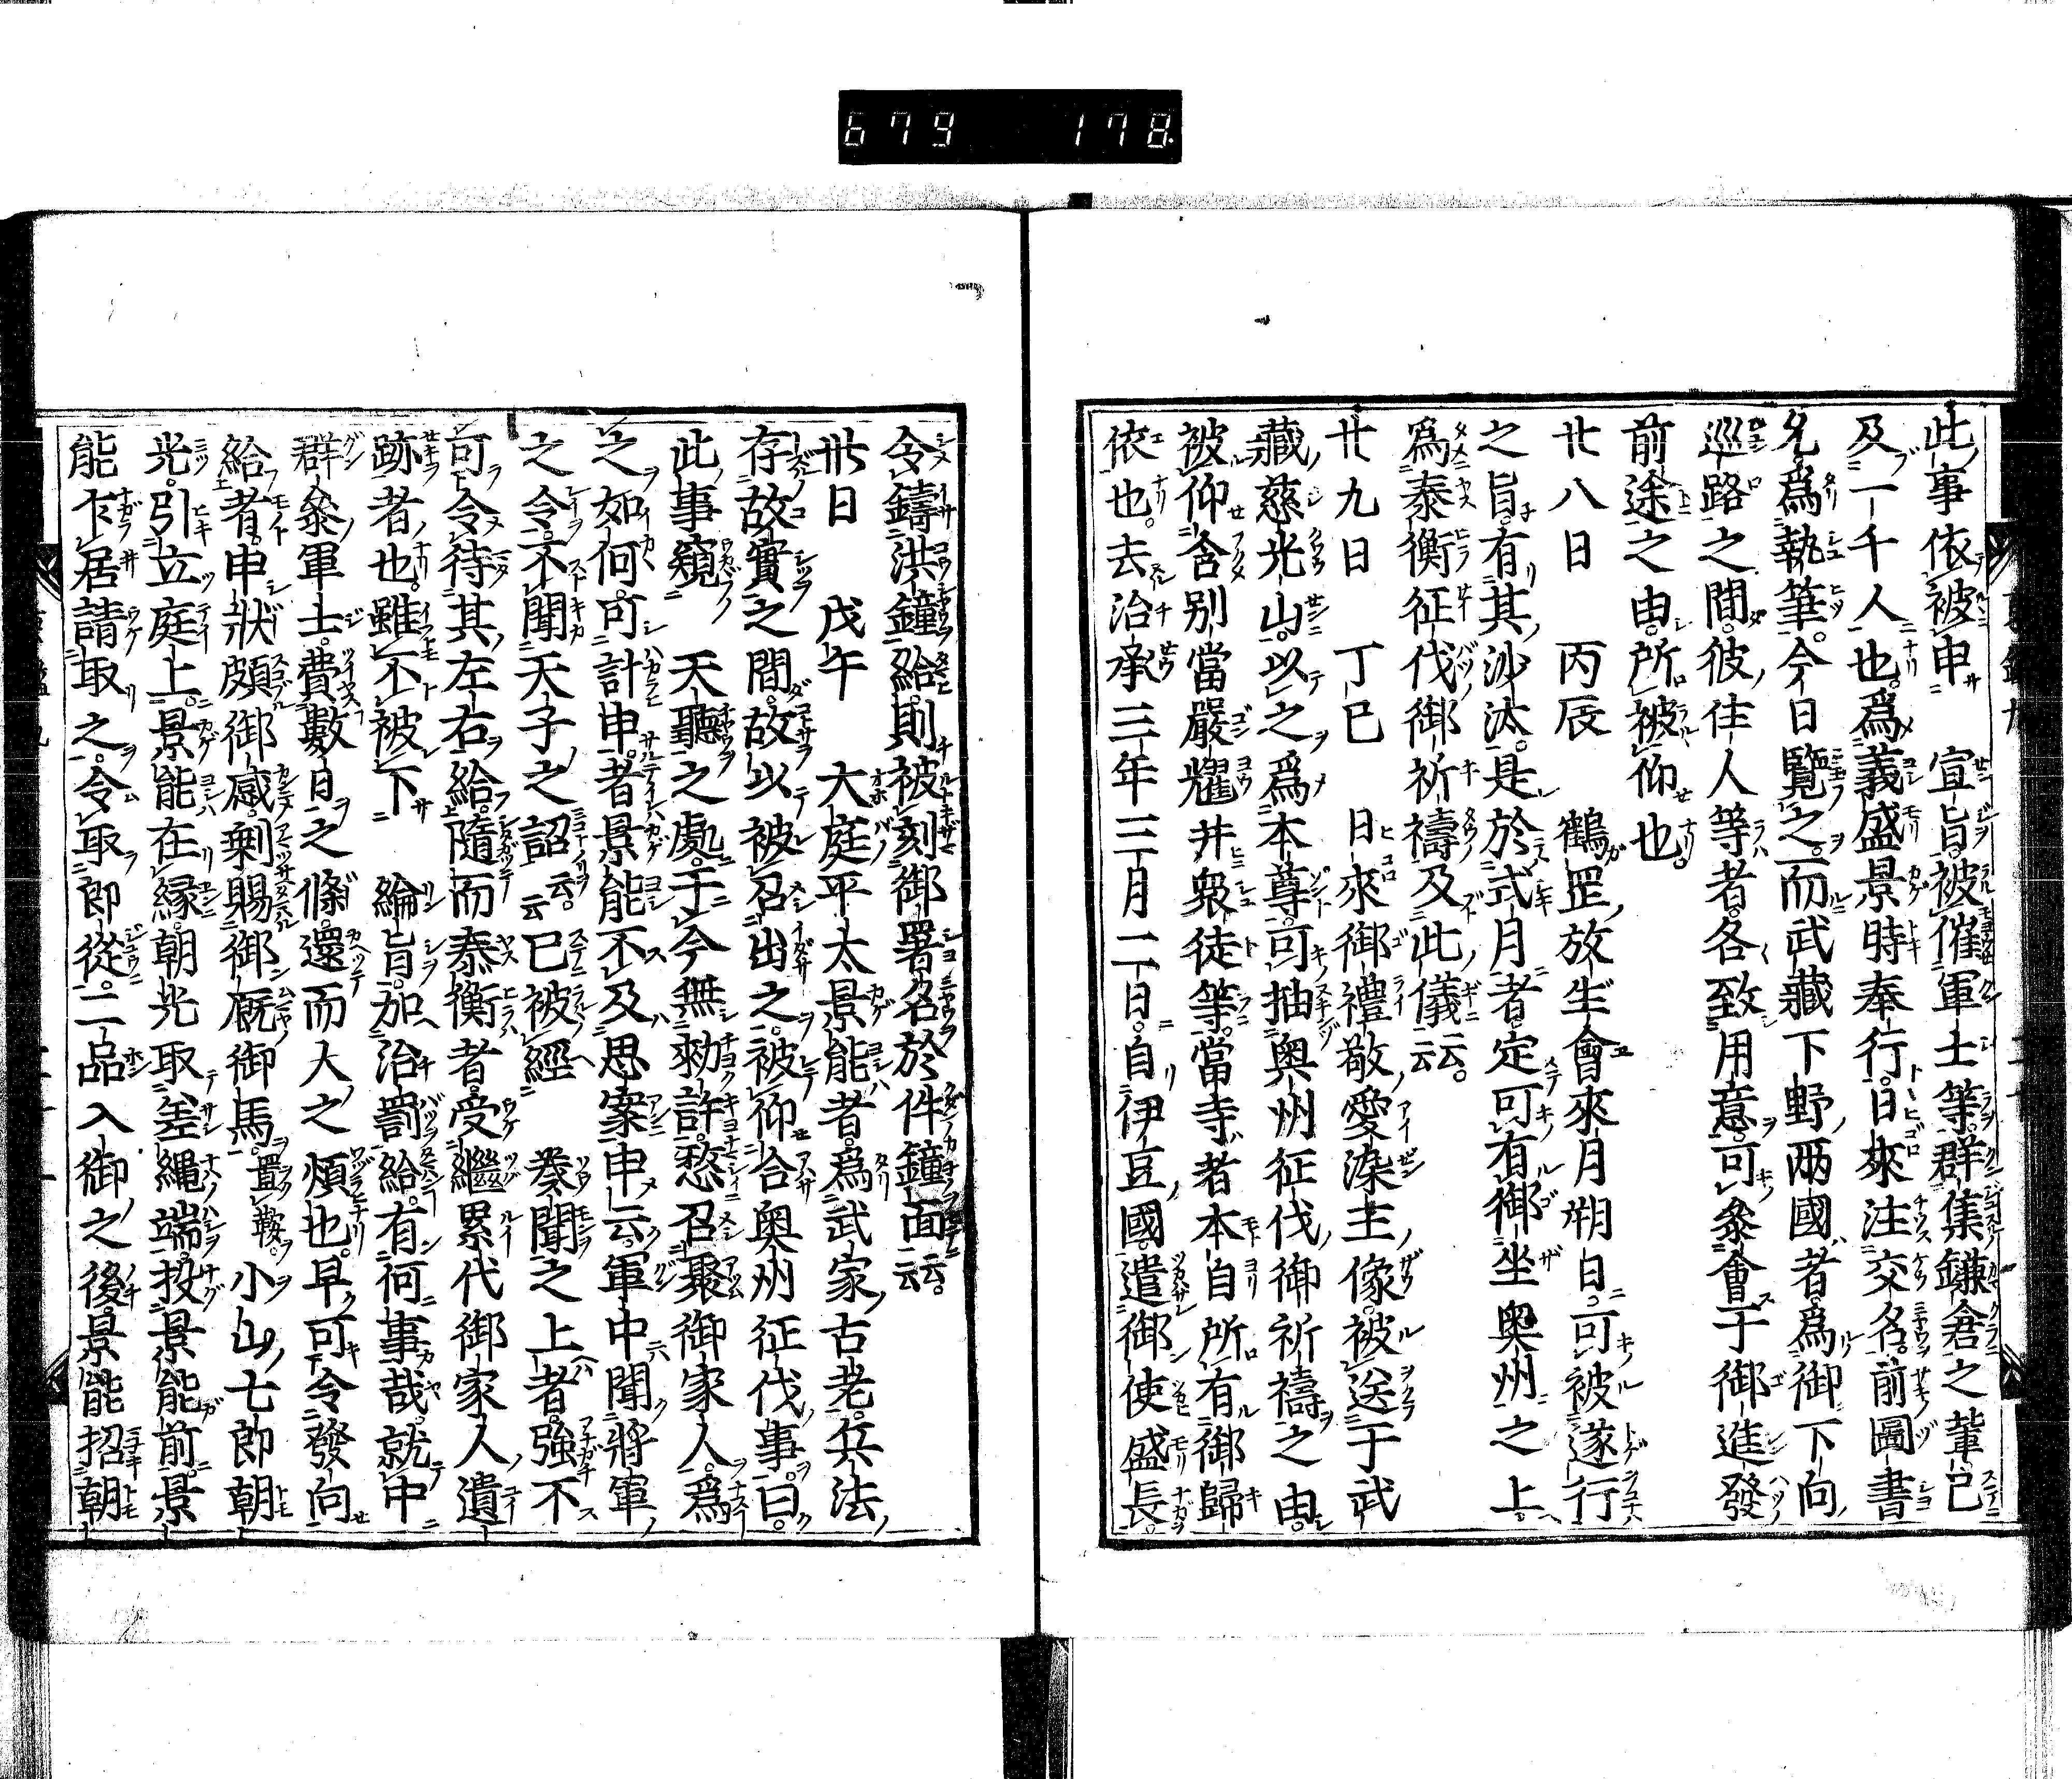 679 178
此事依被申 宣旨。被催軍士等。群集鎌倉之輩。已
及一千人也。爲義盛景時奉行。日來注交名。前圖書
允。爲執筆。今日覽之。而武藏下野兩國者。爲御下向
巡路之間。彼住人等者。各致用意。可參會于御進發
前途之由。所被仰也。
廿八日 丙辰 鶴罡放生會來月朔日。可被遂行
之旨。有其沙汰。是於式月者。定可有御坐奥州之上。
爲泰衡征伐御祈禱及此儀云云。
廿九日 丁巳 日來御禮敬愛染王像。被送于武
藏慈光山。以之爲本尊。可抽奥州征伐御祈禱之由。
被仰含別當嚴耀并衆徒等。當寺者本自所有御歸
依也。去治承三年三月二日。自伊豆國。遣御使盛長。
令鑄洪鐘給。則被刻御署名於件鐘面云云。
卅日 戊午 大庭平太景能者。爲武家古老。兵法
存故實之間。故以被召出之。被仰合奥州征伐事。曰。
此事窺 天聽之處。于今無勅許。憖召聚御家人。爲
之如何。可計申者景能不及思案申云。軍中聞將軍
之令。不聞天子之詔云云。已被經 奏聞之上者。強不
可令待其左右給。隨而泰衡者。受繼累代御家人遺
跡者也。雖不被下 綸旨。加治罰給。有何事哉。就中
群參軍士。費數日之條。還而人之煩也。早可令發向
給者。申狀頗御感。剩賜御厩御馬。置鞍。小山七郎朝
光。引立庭上。景能在縁。朝光取差繩端。投景能前。景
能乍居請取之。令取郎從。二品入御之後。景能招朝